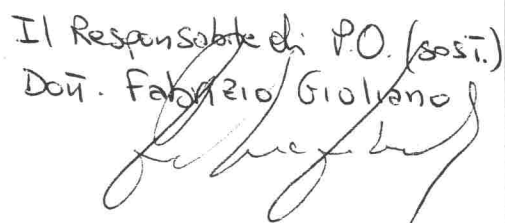 Il Responsabile di P.O. (sost.)
Dott. Fabrizio Giuliano